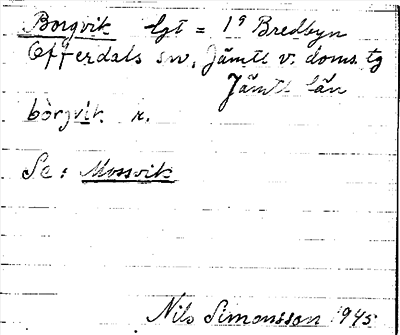 Borgvik lgt = 1ª Bredbyn
Offerdals sn. Jämtl v. doms. tg
Jämtl län
bòrgvik. n.
Se: Mossvik
Nils Simonsson 1945